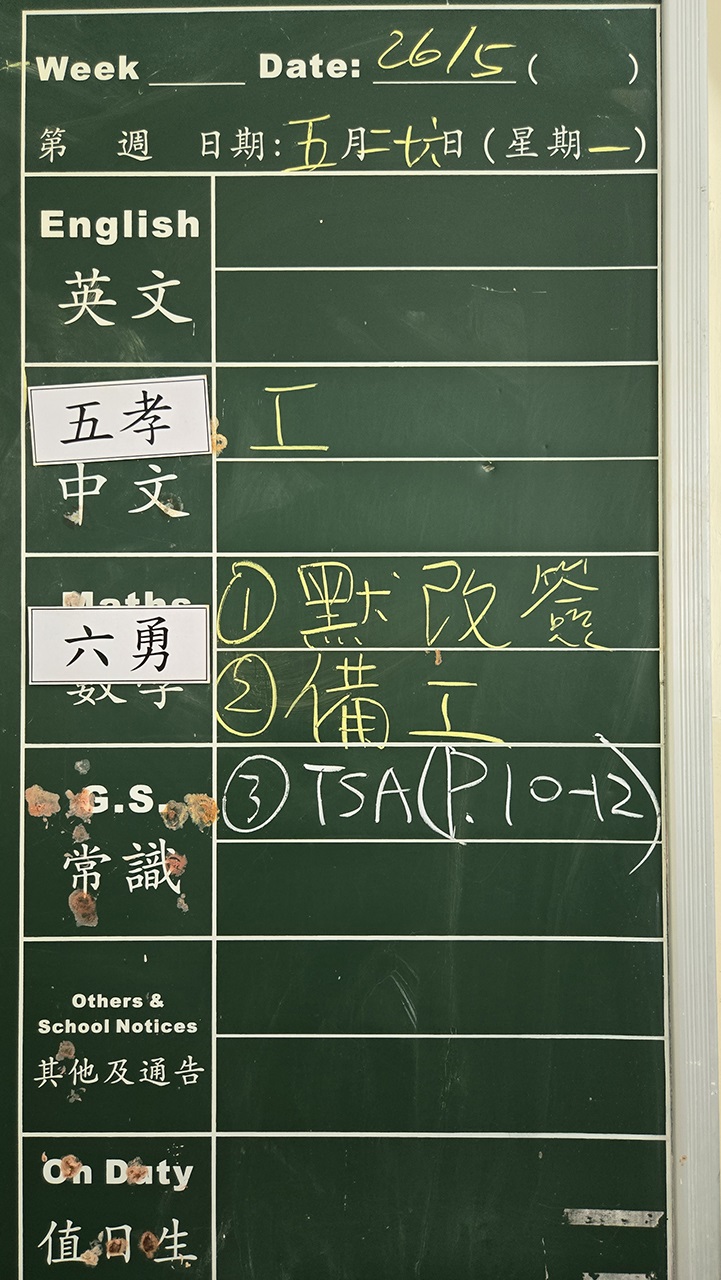 Week Date: 26/5 ( )
第 週 日期: 五月二十六日 (星期一)
English
英文
五孝
工
中文
Maths
① 默改簽
六勇
數學
② 備工
G.S.
③ TSA (P.10-12)
常識
Others &
School Notices
其他及通告
On Duty
值日生